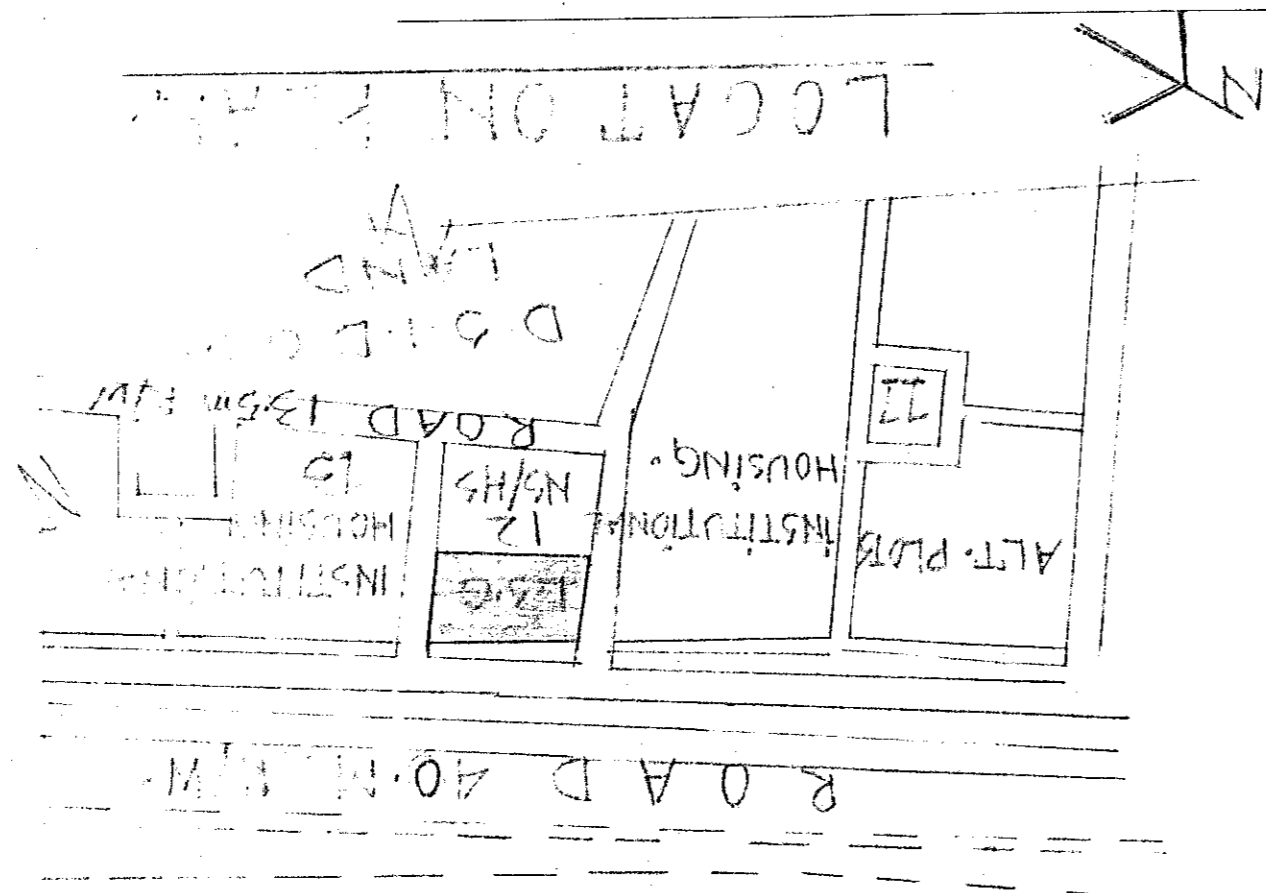 ROAD 40·M R/W
ALT·PLOTS
INSTITUTIONAL
HOUSING
L·S·C
12
NS/HS
INSTITUTIONAL
HOUSING
ROAD 13·5m R/W
LAND
LOCATION PLAN
N